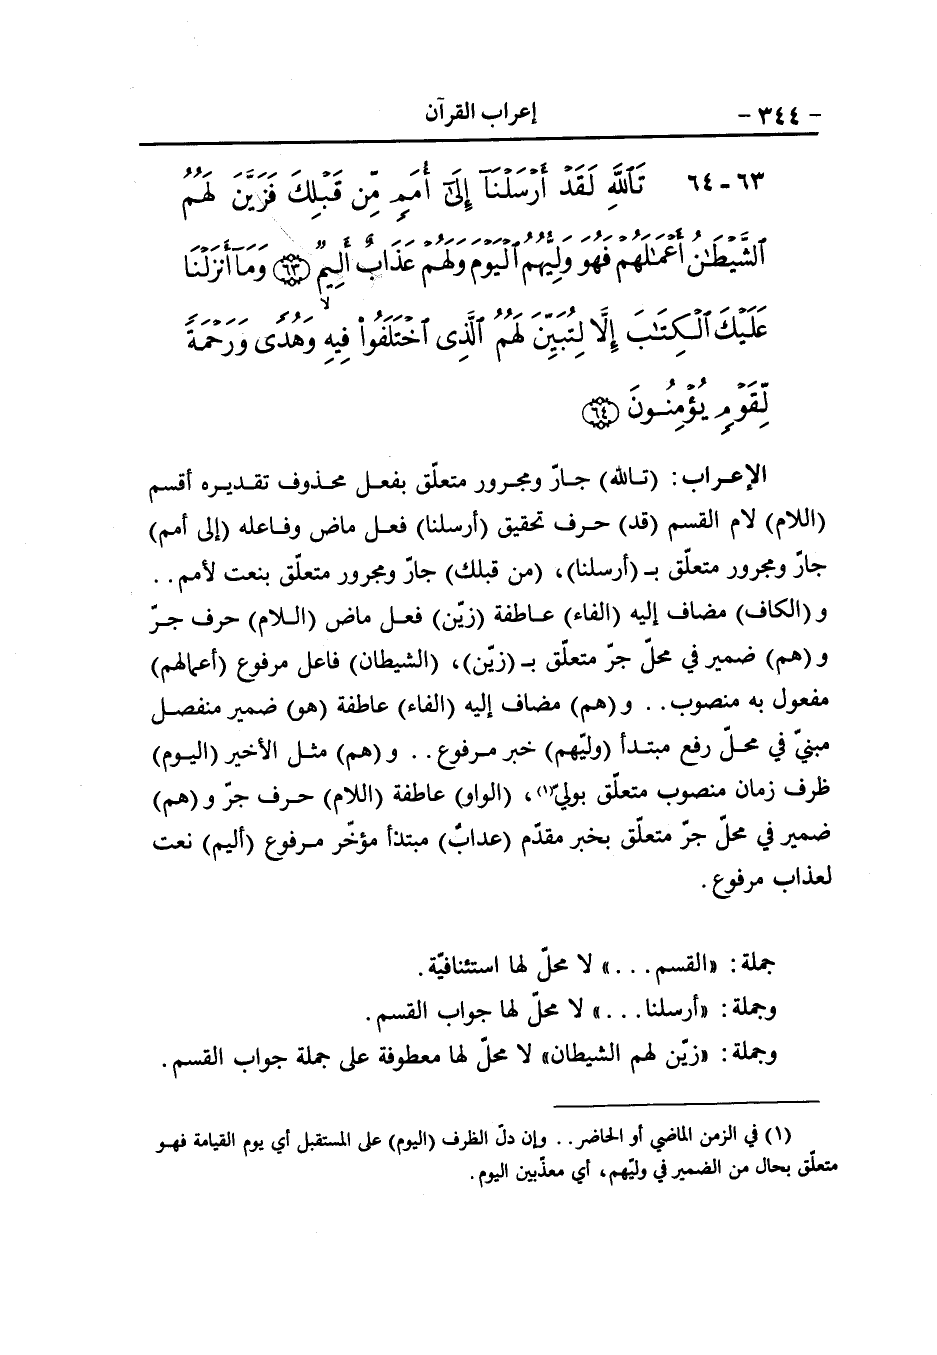 - ٣٤٤ - إعراب القرآن
٦٣ - ٦٤ تَاللَّهِ لَقَدْ أَرْسَلْنَا إِلَىٰ أُمَمٍ مِّن قَبْلِكَ فَزَيَّنَ لَهُمُ
الشَّيْطَٰنُ أَعْمَٰلَهُمْ فَهُوَ وَلِيُّهُمُ الْيَوْمَ وَلَهُمْ عَذَابٌ أَلِيمٌ ﴿٦٣﴾ وَمَا أَنزَلْنَا
عَلَيْكَ الْكِتَٰبَ إِلَّا لِتُبَيِّنَ لَهُمُ الَّذِى اخْتَلَفُوا فِيهِ ۙ وَهُدًى وَرَحْمَةً
لِّقَوْمٍ يُؤْمِنُونَ ﴿٦٤﴾
الإعراب: (تالله) جارّ ومجرور متعلّق بفعل محذوف تقديره أقسم
(اللام) لام القسم (قد) حرف تحقيق (أرسلنا) فعل ماض وفاعله (إلى أمم)
جارّ ومجرور متعلّق بـ (أرسلنا)، (من قبلك) جارّ ومجرور متعلّق بنعت لأمم . .
و (الكاف) مضاف إليه (الفاء) عاطفة (زيّن) فعل ماض (اللام) حرف جرّ
و (هم) ضمير في محلّ جرّ متعلّق بـ (زيّن)، (الشيطان) فاعل مرفوع (أعمالهم)
مفعول به منصوب . . و (هم) مضاف إليه (الفاء) عاطفة (هو) ضمير منفصل
مبنيّ في محلّ رفع مبتدأ (وليّهم) خبر مرفوع . . و (هم) مثل الأخير (اليوم)
ظرف زمان منصوب متعلّق بوليّ(١)، (الواو) عاطفة (اللام) حرف جرّ و (هم)
ضمير في محلّ جرّ متعلّق بخبر مقدّم (عذابٌ) مبتدأ مؤخّر مرفوع (أليم) نعت
لعذاب مرفوع .
جملة: «القسم . . .» لا محلّ لها استئنافيّة .
وجملة: «أرسلنا . . .» لا محلّ لها جواب القسم .
وجملة: «زيّن لهم الشيطان» لا محلّ لها معطوفة على جملة جواب القسم .
(١) في الزمن الماضي أو الحاضر . . وإن دلّ الظرف (اليوم) على المستقبل أي يوم القيامة فهو
متعلّق بحال من الضمير في وليّهم، أي معذّبين اليوم .